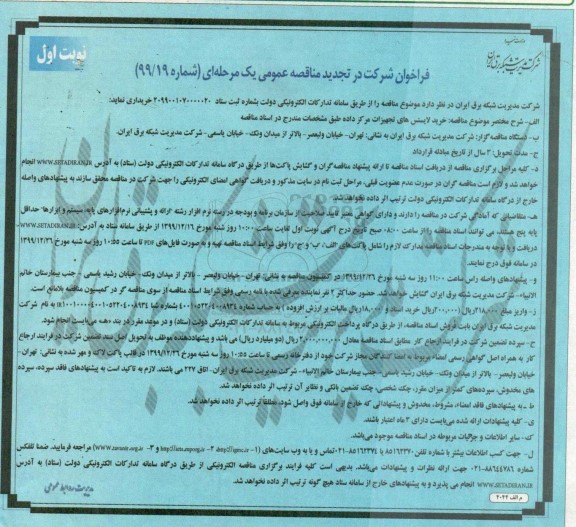 نوبت اول
شرکت مدیریت شبکه برق ایران
فراخوان شرکت در تجدید مناقصه عمومی یک مرحله‌ای (شماره ۹۹/۱۹)
شرکت مدیریت شبکه برق ایران در نظر دارد موضوع مناقصه را از طریق سامانه تدارکات الکترونیکی دولت بشماره ثبت ستاد ۲۰۹۹۰۰۱۰۷۰۰۰۰۰۲۰ خریداری نماید:
الف- شرح مختصر موضوع مناقصه: خرید لایسنس های تجهیزات مرکز داده طبق مشخصات مندرج در اسناد مناقصه
ب- دستگاه مناقصه گزار: شرکت مدیریت شبکه برق ایران به نشانی: تهران- خیابان ولیعصر- بالاتر از میدان ونک- خیابان یاسمی- شرکت مدیریت شبکه برق ایران.
ج- مدت تحویل: ۳ سال از تاریخ مبادله قرارداد
د- کلیه مراحل برگزاری مناقصه از دریافت اسناد مناقصه تا ارائه پیشنهاد مناقصه‌گران و گشایش پاکت‌ها از طریق درگاه سامانه تدارکات الکترونیکی دولت (ستاد) به آدرس WWW.SETADIRAN.IR انجام
خواهد شد و لازم است مناقصه گران در صورت عدم عضویت قبلی، مراحل ثبت نام در سایت مذکور و دریافت گواهی امضای الکترونیکی را جهت شرکت در مناقصه محقق سازند به پیشنهادهای واصله
خارج از درگاه سامانه تدارکات الکترونیکی دولت ترتیب اثر داده نخواهد شد.
هـ- متقاضیانی که آمادگی شرکت در مناقصه را دارند و دارای گواهی معتبر تأیید صلاحیت از سازمان برنامه و بودجه در رسته نرم افزار رشته "ارائه و پشتیبانی نرم‌افزارهای پایه، سیستم و ابزارها" حداقل
پایه پنج هستند، می توانند اسناد مناقصه را از ساعت ۰۸:۰۰ صبح تاریخ درج آگهی نوبت اول لغایت ساعت ۱۰:۰۰ روز شنبه مورخ ۱۳۹۹/۱۲/۱۶ از طریق سامانه ستاد به آدرس
دریافت و با توجه به مندرجات اسناد مناقصه مدارک لازم را شامل پاکت های «الف»، «ب» و «ج» را وفق شرایط اسناد مناقصه تهیه و به صورت فایل‌های PDF تا ساعت ۱۰:۵۵ روز سه شنبه مورخ ۱۳۹۹/۱۲/۲۶
در سامانه فوق درج نمایند.
و- پیشنهادهای واصله راس ساعت ۱۱:۰۰ روز سه شنبه مورخ ۱۳۹۹/۱۲/۲۶ در کمیسیون مناقصه به نشانی: تهران- خیابان ولیعصر - بالاتر از میدان ونک- خیابان رشید یاسمی - جنب بیمارستان خاتم
الانبیاء- شرکت مدیریت شبکه برق ایران گشایش خواهد شد. حضور حداکثر ۲ نفر نماینده معرفی شده با نامه رسمی وفق شرایط اسناد مناقصه از سوی مناقصه گر در کمیسیون مناقصه بلامانع است.
شرکت مدیریت شبکه برق ایران بابت فروش اسناد مناقصه، از طریق درگاه پرداخت الکترونیکی مربوط به سامانه تدارکات الکترونیکی دولت (ستاد) و در موعد مقرر در بند «هـ» می‌بایست انجام شود.
ح- سپرده تضمین شرکت در فرآیند ارجاع کار مطابق اسناد مناقصه معادل ۲,۰۰۰,۰۰۰,۰۰۰ ریال (دو میلیارد ریال) می باشد و پیشنهاددهنده موظف به تحویل اصل سند تضمین شرکت در فرآیند ارجاع
کار به همراه اصل گواهی رسمی امضاء مربوط به امضا کنندگان مجاز شرکت خود از دفترخانه رسمی تا ساعت ۱۰:۵۵ روز سه شنبه مورخ ۱۳۹۹/۱۲/۲۶ در قالب پاکت لاک و مهر شده به نشانی: تهران-
خیابان ولیعصر- بالاتر از میدان ونک- خیابان رشید یاسمی- جنب بیمارستان خاتم الانبیاء- شرکت مدیریت شبکه برق ایران- اتاق ۲۲۷ می باشند. لازم به تاکید است به پیشنهادهای فاقد سپرده، سپرده
های مخدوش، سپرده‌های کمتر از میزان مقرر، چک شخصی، چک تضمین بانکی و نظایر آن ترتیب اثر داده نخواهد شد.
ط- به پیشنهادهای فاقد امضاء، مشروط، مخدوش و پیشنهاداتی که خارج از سامانه فوق واصل شود، مطلقاً ترتیب اثر داده نخواهد شد.
ی- کلیه پیشنهادات ارائه شده می‌بایست دارای ۳ ماه اعتبار باشند.
ک- سایر اطلاعات و جزئیات مربوطه در اسناد مناقصه موجود می‌باشد.
شماره ۸۸۶۴۴۷۸۶-۰۲۱ جهت ارائه نظرات و پیشنهادات می‌باشد. بدیهی است کلیه فرآیند برگزاری مناقصه الکترونیکی از طریق سامانه تدارکات الکترونیکی دولت (ستاد) به آدرس
WWW.SETADIRAN.IR انجام می پذیرد و به پیشنهادهای خارج از سامانه ستاد هیچ گونه ترتیب اثر داده نخواهد شد.
مدیریت روابط عمومی
م الف ۲۰۲۲